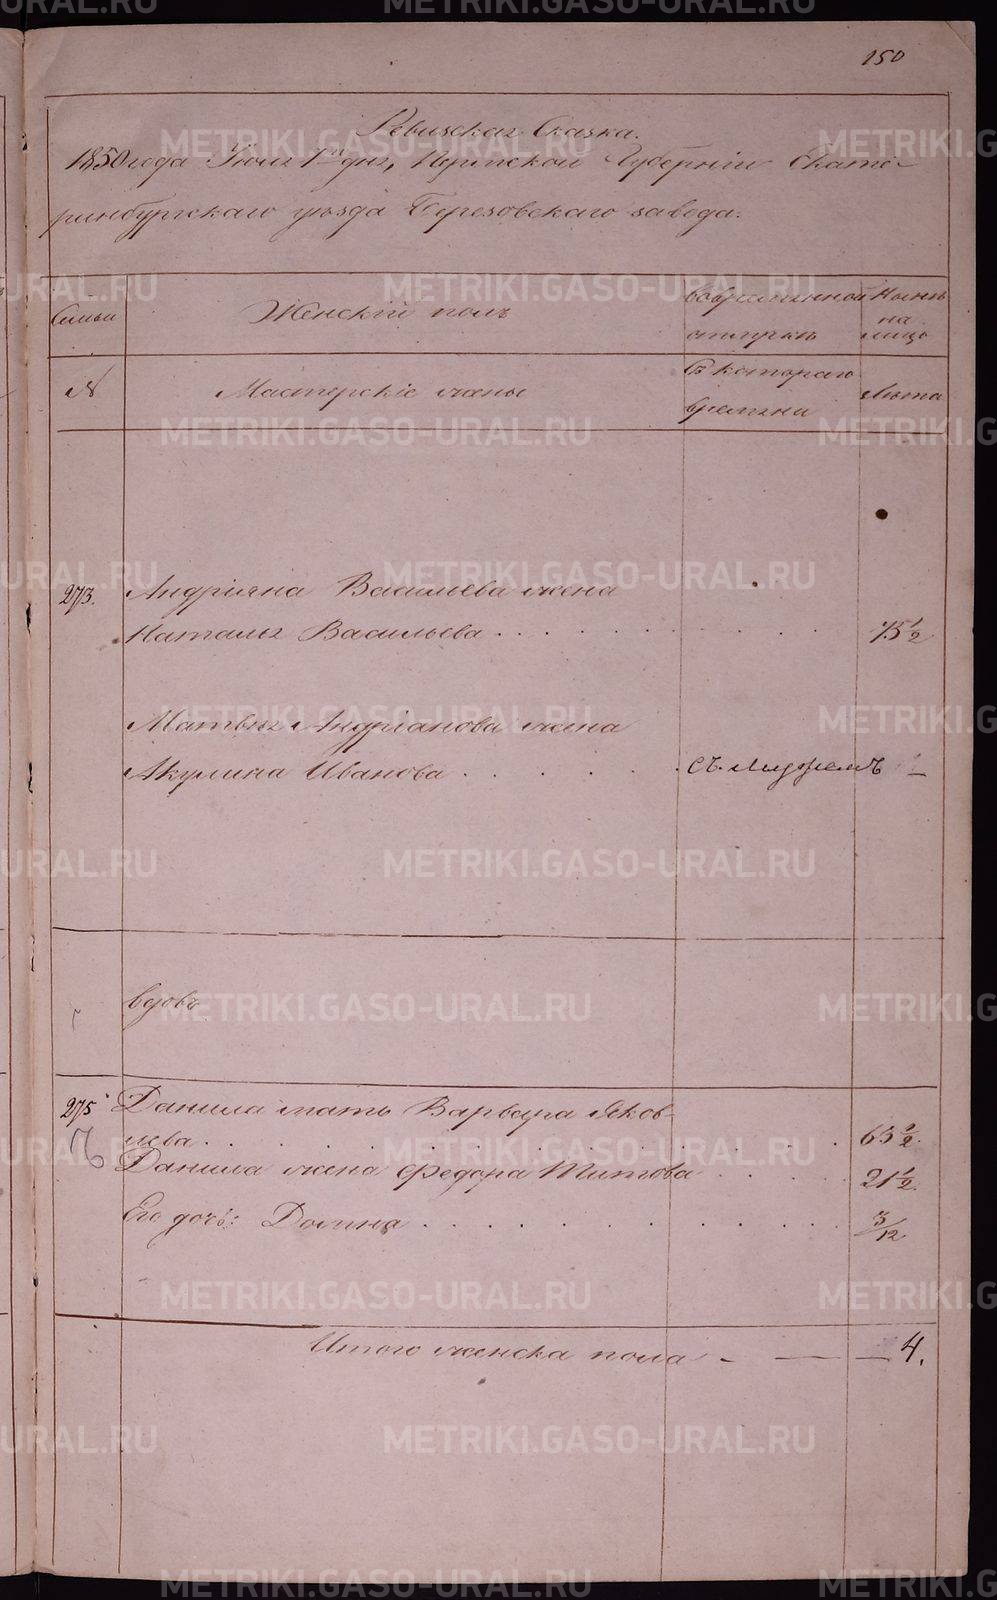 150
Ревизская Сказка.
1850 года Июля 1го дня, Пермской Губернiи Екате-
ринбургскаго уѣзда Березовскаго завода.
Семьи
Женскiй полъ
Вовременной
отлучкѣ
Нынѣ
на
лицо
№
Мастерскiе жены
Съ котораго
времени
Лѣта
273.
Андрiяна Васильева жена
Наталья Васильева
75 1/2
Матвѣя Андрiанова жена
Акулина Иванова
Съ мужемъ
вдовъ
275
Данила мать Варвара Яков-
лева
63 1/2.
Данила жена Федора Титова
21 1/2.
Его дочь:
3/12
Итого женска пола
4.
METRIKI.GASO-URAL.RU